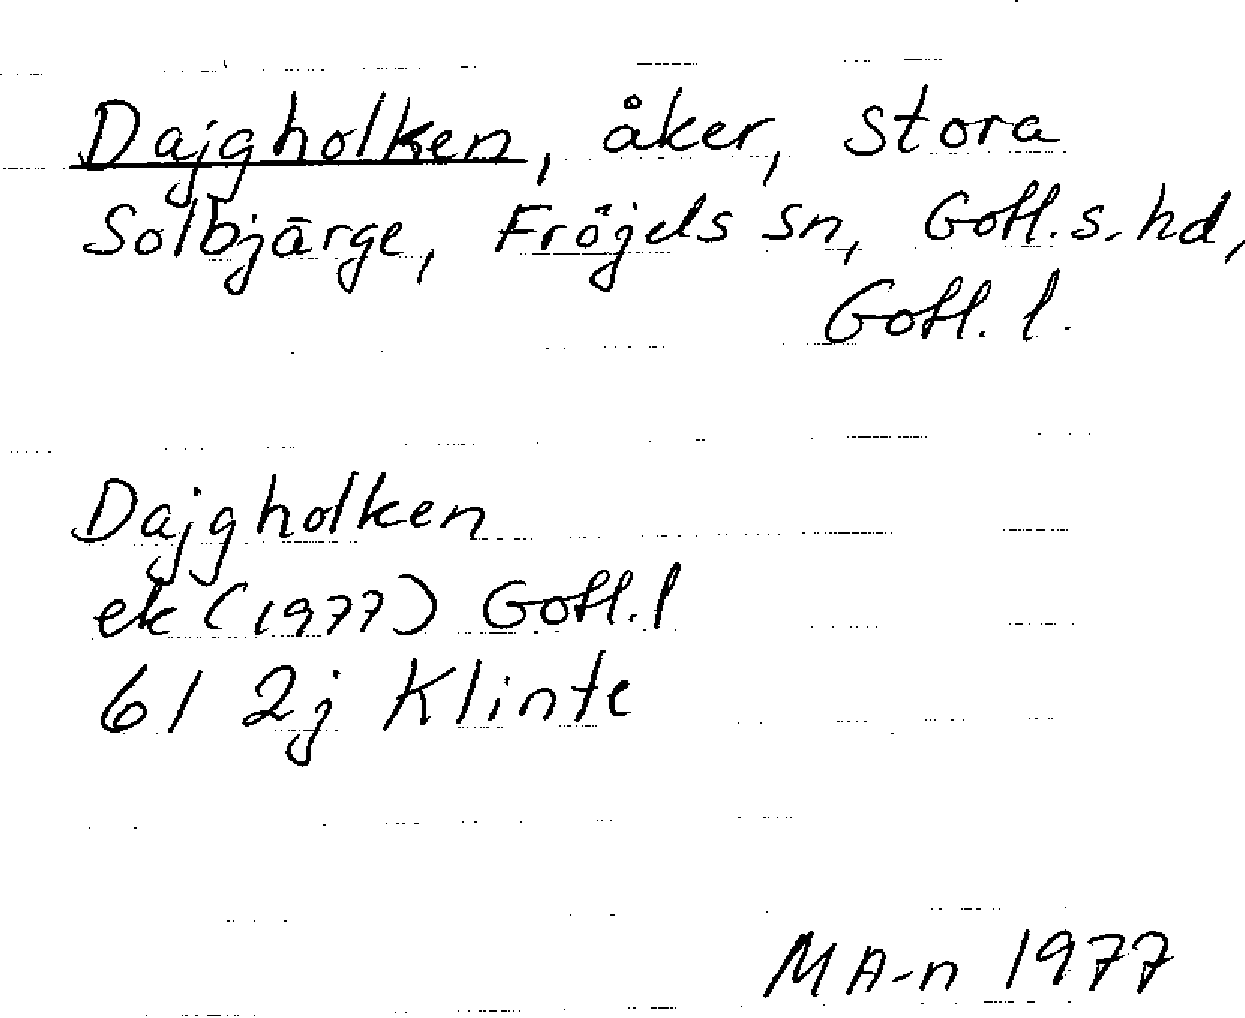 Dajgholken, åker, Stora
Solbjärge, Fröjels sn, Gotl. s. hd,
Gotl. l.
Dajgholken
ek (1977) Gotl. l
6I 2j Klinte
MA-n 1977